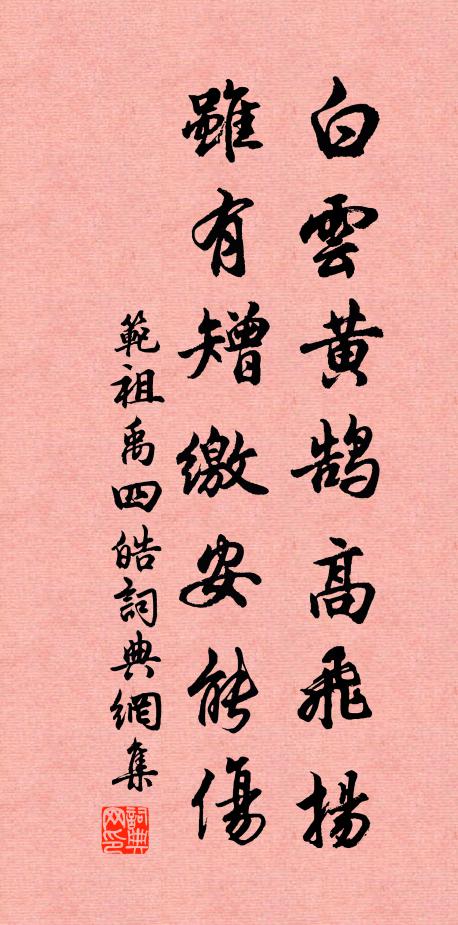 白雲黃鵠高飛揚
雖有矰繳安能傷
範祖禹四皓詞典網集
詞典网印